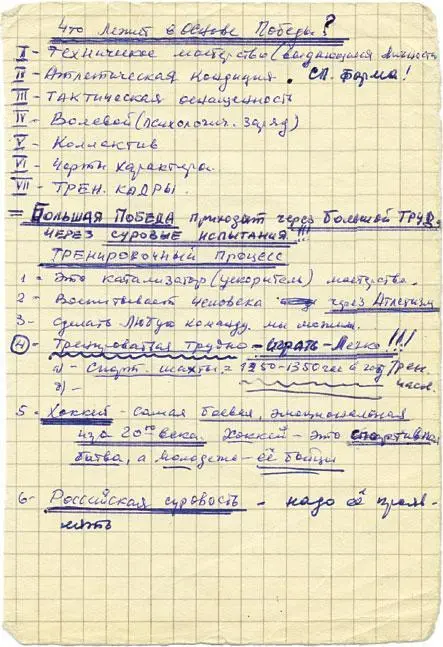 Что лежит в основе Победы?
I - Техническое мастерство (выдающаяся личность
II - Атлетическая кондиция. СП. Форма!
III - Тактическая оснащенность
IV - Волевой (психологич. заряд)
V - Коллектив
VI - Черты характера.
VII - ТРЕН. КАДРЫ.
= Большая Победа приходит через большой ТРУД,
через суровые испытания!!!
Тренировочный процесс
1 - Это катализатор (ускоритель) мастерства.
2 - Воспитывает человека через Атлетизм
3 - Сделать любую команду мы можем.
4 - Тренироваться трудно - играть - легко!!!
а) - Спорт. шахты = 1250-1350 час в год Трен.
часов.
5 - Хоккей - самая боевая, эмоциональная
игра 20го века. Хоккей - это спортивная
битва, а молодежь - её бойцы
6 - Российская суровость - надо её прояв-
лять